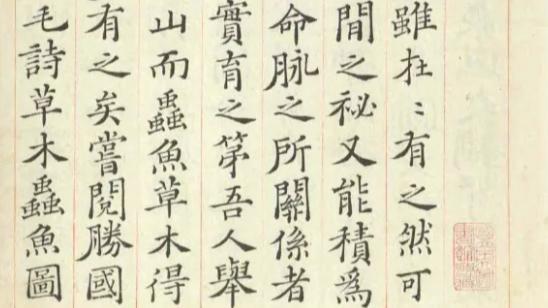 雖在〻有之然可
閒之祕又能積爲
命脉之所關係者
實育之第吾人舉
山而蟲魚草木得
有之矣嘗閱勝國
毛詩草木蟲魚圖